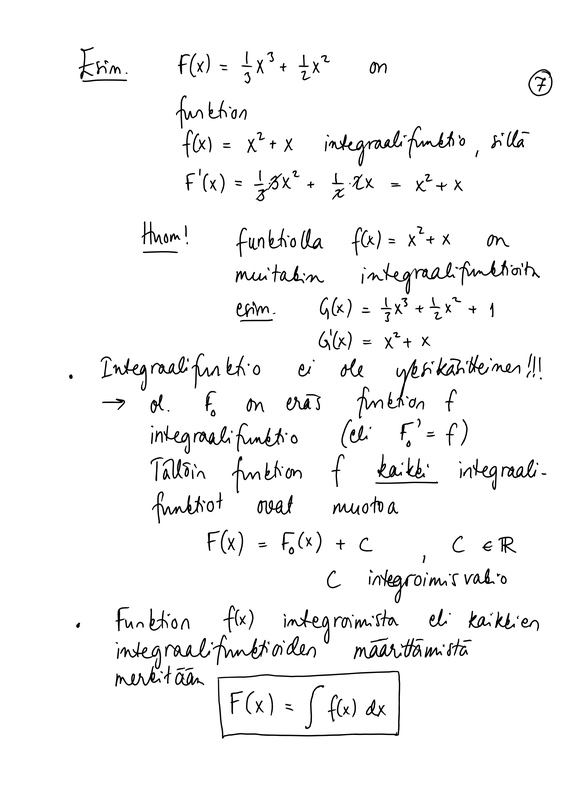 Esim. F(x) = 1/3 x³ + 1/2 x² on
⑦
funktion
f(x) = x² + x integraalifunktio, sillä
F'(x) = 1/3·3x² + 1/2·2x = x² + x
Huom! funktiolla f(x) = x² + x on
muitakin integraalifunktioita
esim. G(x) = 1/3 x³ + 1/2 x² + 1
G'(x) = x² + x
• Integraalifunktio ei ole yksikäsitteinen!!!
→ ol. F₀ on eräs funktion f
integraalifunktio (eli F₀' = f)
Tällöin funktion f kaikki integraali-
funktiot ovat muotoa
F(x) = F₀(x) + C , C ∈ ℝ
C integroimisvakio
• Funktion f(x) integroimista eli kaikkien
integraalifunktioiden määrittämistä
merkitään
F(x) = ∫ f(x) dx